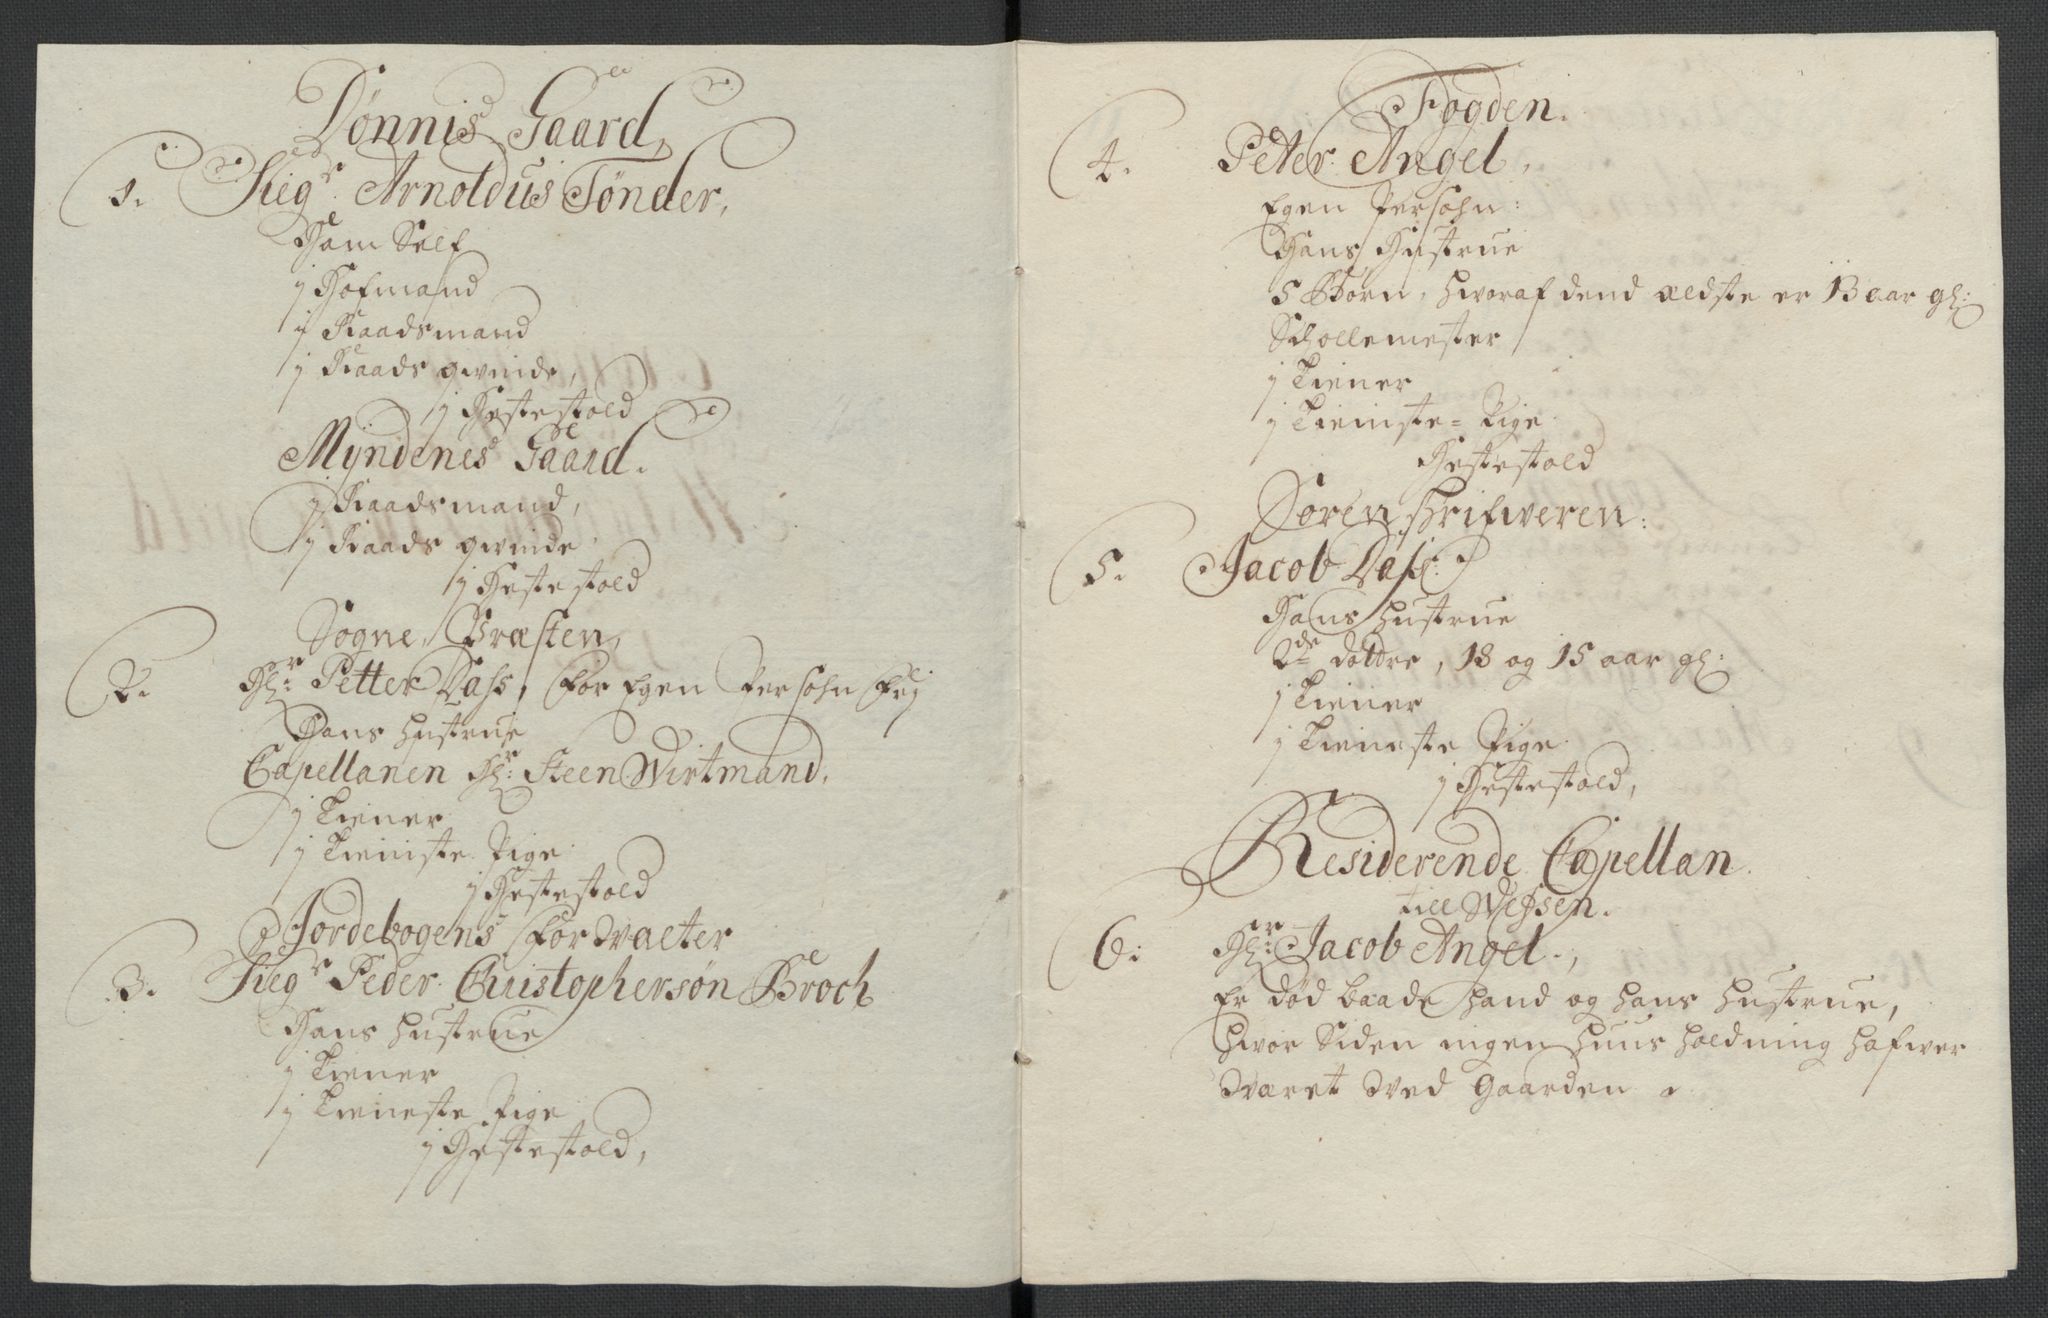 Dønnis Gaard,
1. Sieg.r Arnoldus Tønder,
Ham Self
j Hofmand
j Raadsmand
j Raads qwinde,
j Hestestold
Myndenes Gaard.
j Raadsmand,
j Raads qwinde
j Hestestold
Sogne Præsten,
2. Hr: Petter Dass, for Egen Persohn frij
Hans hustrue
Capellanen Hr: Steen Wirtmand,
j tiener
j tieniste Pige
j Hestestold
Jordebogens forwalter
3. Sieg.r Peder Christophersøn Broch
Hans hustrue
j tiener
j tieneste Pige
j Hestestold,
Fogden.
4. Peter Angel,
Egen Persohn:
Hans Hustrue
5 Børn, hvoraf dend ældste er 13 aar gl:
Schollemester
j tiener
j tieniste= Pige
Hestestold
Sorenschrifweren:
5. Jacob Dass:
Hans hustrue
2de døttre, 18 og 15 aar gl:
j tiener
j tieneste Pige
j Hestestold,
Residerende Capellan
till Wefsen.
6: Hr: Jacob Angel.,
Er død baade hand og hans hustrue,
hvor siden ingen huusholdning hafwer
wæret wed Gaarden